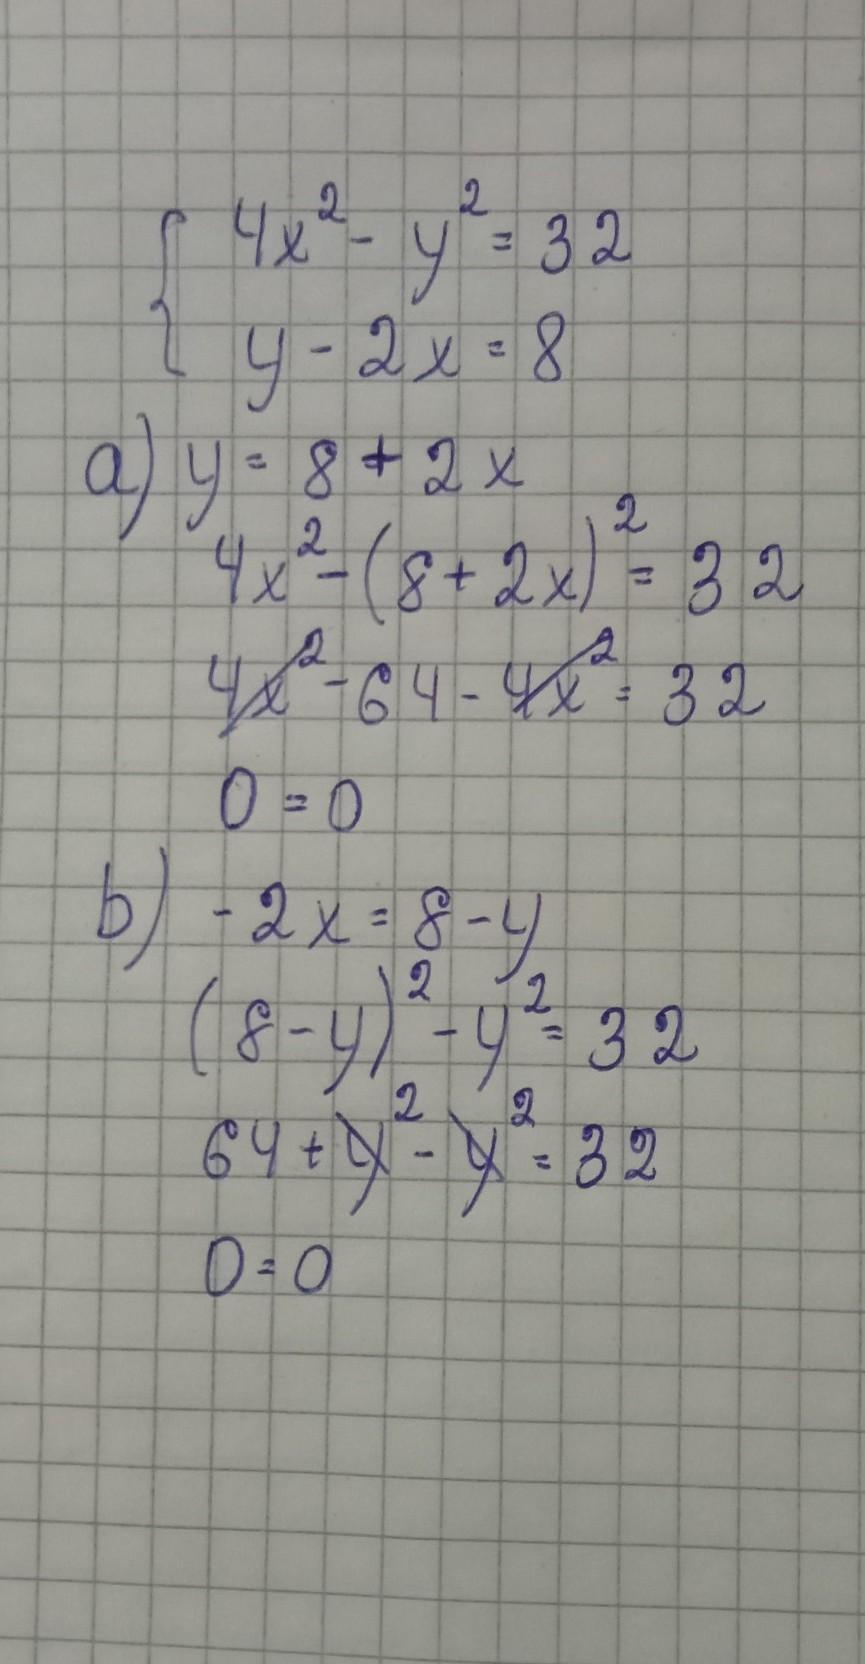 4x² - y² = 32
y - 2x = 8
a) y = 8 + 2x
4x² - (8 + 2x)² = 32
4x² - 64 - 4x² = 32
0 = 0
b) -2x = 8 - y
(8 - y)² - y² = 32
64 + y² - y² = 32
0 = 0